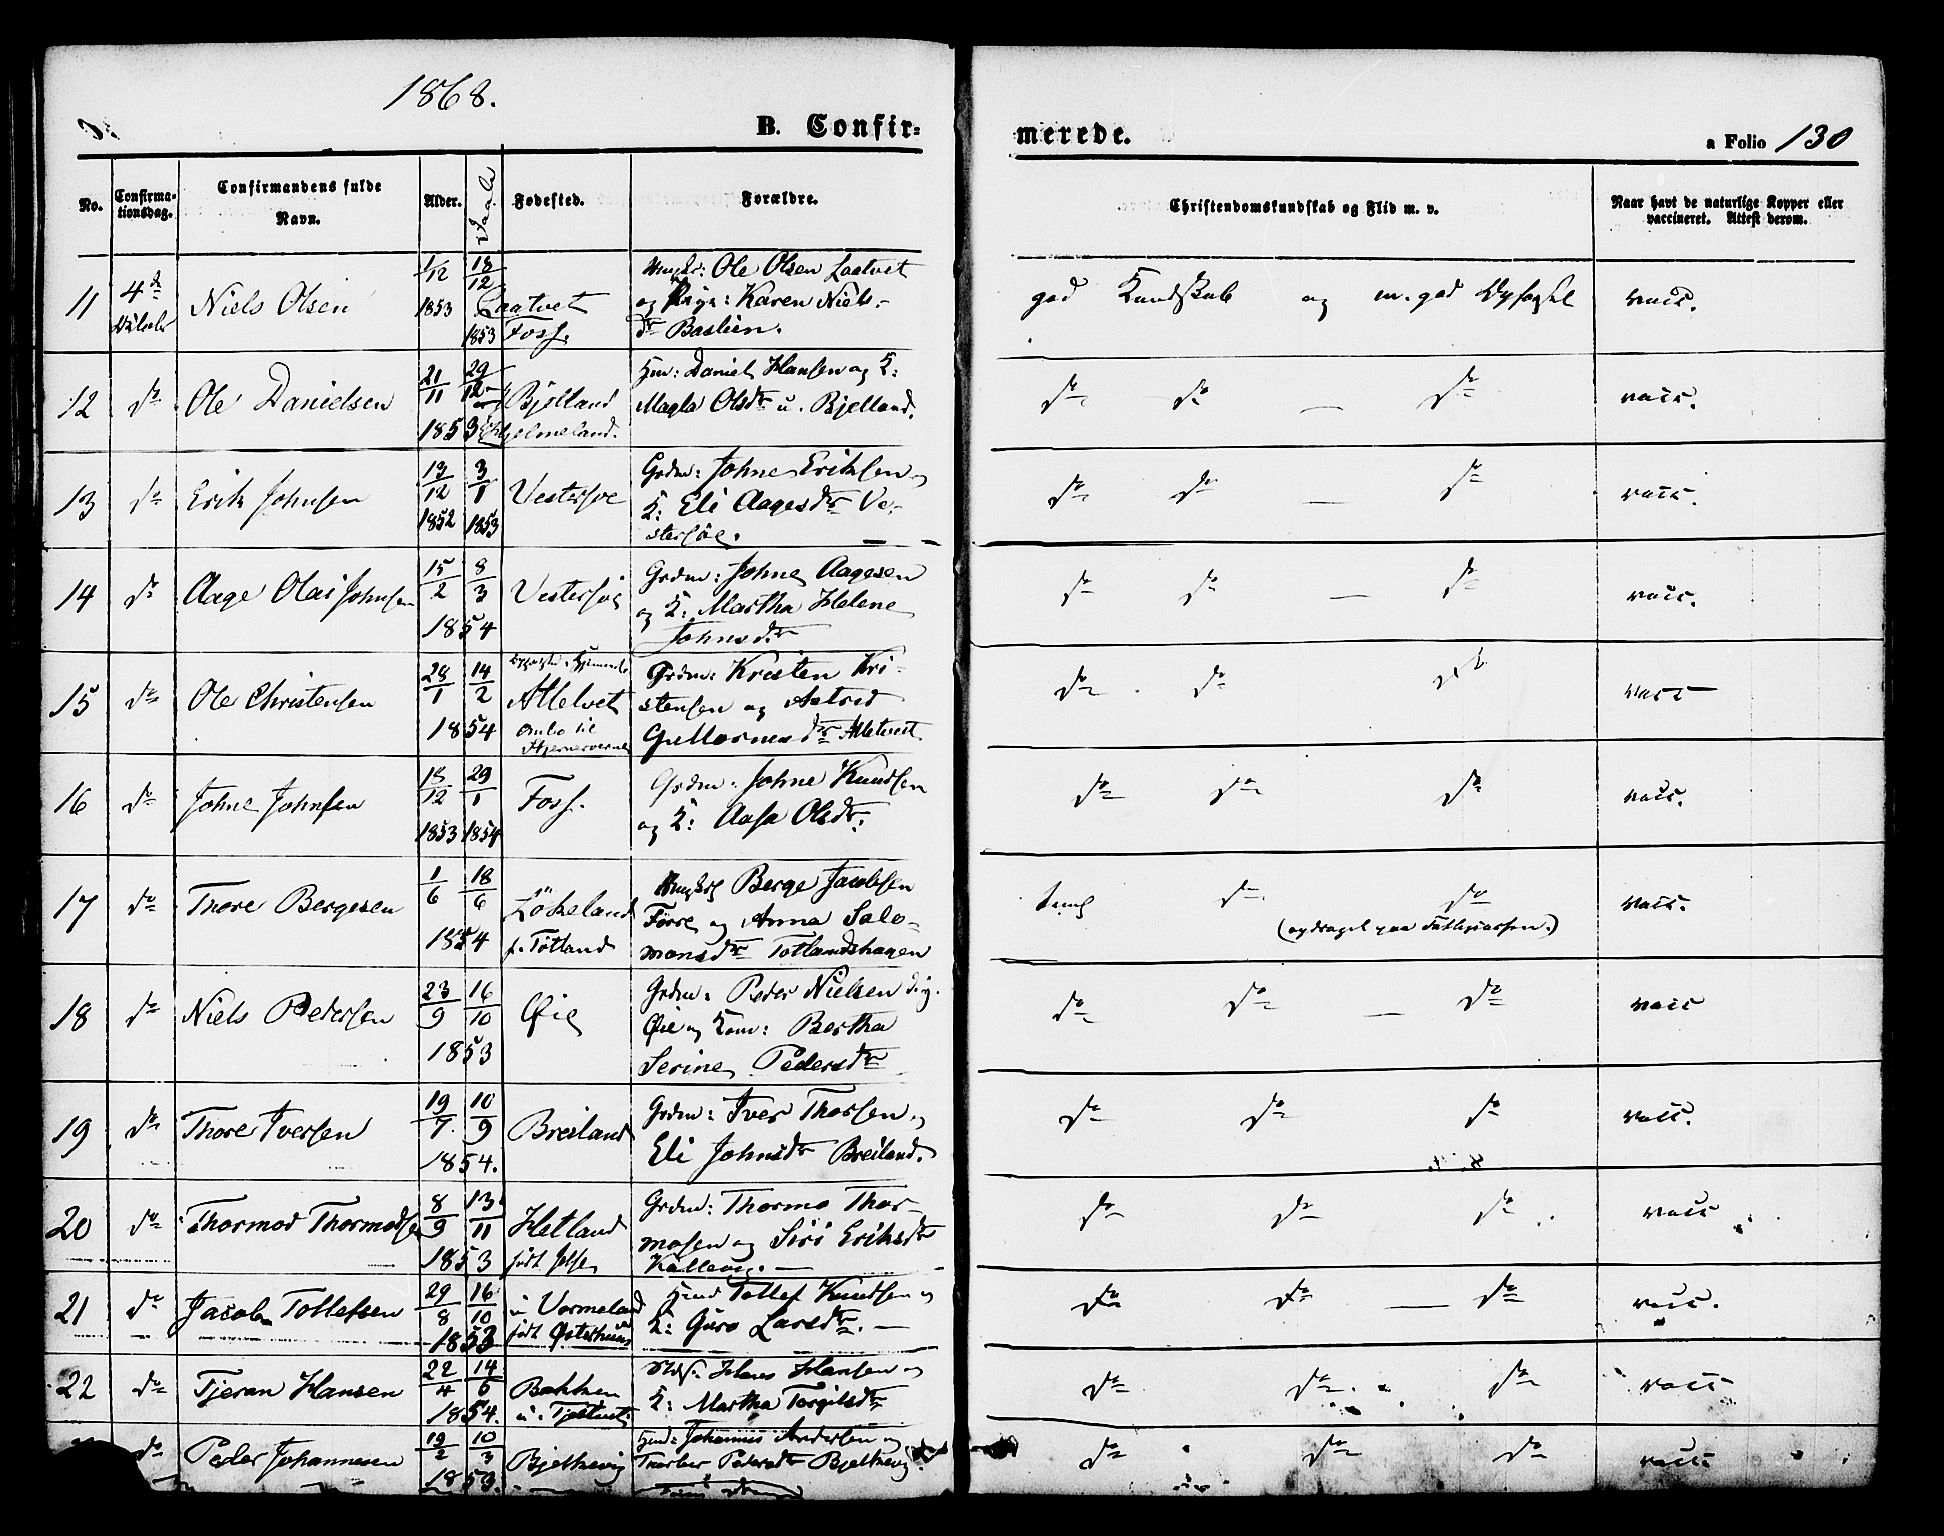 1868.
B. Confir-
merede.
a Folio 130
No.
Confirma-
tionsdag.
Confirmandens fulde
Navn.
Alder.
Daab
Fødested.
Forældre.
Christendomskundskab og Flid m. v.
Naar havt de naturlige Kopper eller
vaccineret. Attest derom.
11 4de Niels Olsen 1/12 1853 18/12 1853 Laatvet Foss.
Ole Olsen Laatvet
og Karen Niels-
dr Bastien.
god Kundskab og m. god vacc.
12 do Ole Danielsen 21/11 29/12 1853 Bjelland Hjelmeland.
Hm: Daniel Hansen og K:
Magla Olsdr u. Bjelland.
do do — do vacc.
13 do Erik Johnsen 13/12 1852 3/1 1853 Vestersøe
Grdm: Johne Eriksen og
K: Eli Aagesdr Ve-
stersöe.
do do — do vacc.
14 do Aage Olai Johnsen 15/2 8/3 1854 Vestersøe
Grdm: Johne Aagesen
og K: Martha Helene
Johnsdr
do do — do vacc.
15 do Ole Christensen 28/1 14/2 1854 Atletvet
Grdm: Kristen Kri-
stensen og Astrid
Guttormsdr Atletveit
do do do vacc
16 do Johne Johnsen 18/12 1853 29/1 1854 Foss.
Grdm: Johne Knudsen
og K: Aasa Olsdr.
do do do vacc.
17 do Thore Bergesen 1/6 18/6 1854 Lökeland f. Tötland
Berge Jacobsen
Førre og Anna Salo-
monsdr Totlandshagen
do do vacc.
18 do Niels Pedersen 23/9 16/10 1853 Øie
Grdm: Peder Nielsen
Øie og Kone: Bertha
Serine Pedersdr
do do — do vacc
19 do Thore Iversen 19/7 10/9 1854. Breiland
Grdm: Iver Thorsen og
Eli Johnsdr Breiland.
do do do vacc.
20 do Thormod Thormodsen 8/9 13/11 1853 Hetland født Jelse
Grdm: Thormo Thor-
mosen og Siri Eriksdr
Kallevig. —
do do do vacc
21 do Jacob Tollefsen 29/8 16/10 1853 u Vormeland født Østerhuus
Hmd Tollef Knudsen og
K: Guro Larsdr. —
do do — do vacc.
22 do Tjeran Hansen 22/4 14/6 1854. Bakken u. Tjeltveit.
Hans Hansen og
K: Martha Torgilsdr
do do do vacc
do Peder Johannesen 19/2 10/3 1853. Bjelkevig
Hmd: Johannes Andersen og
Pedersdr Bjelkevig
do do do vacc.